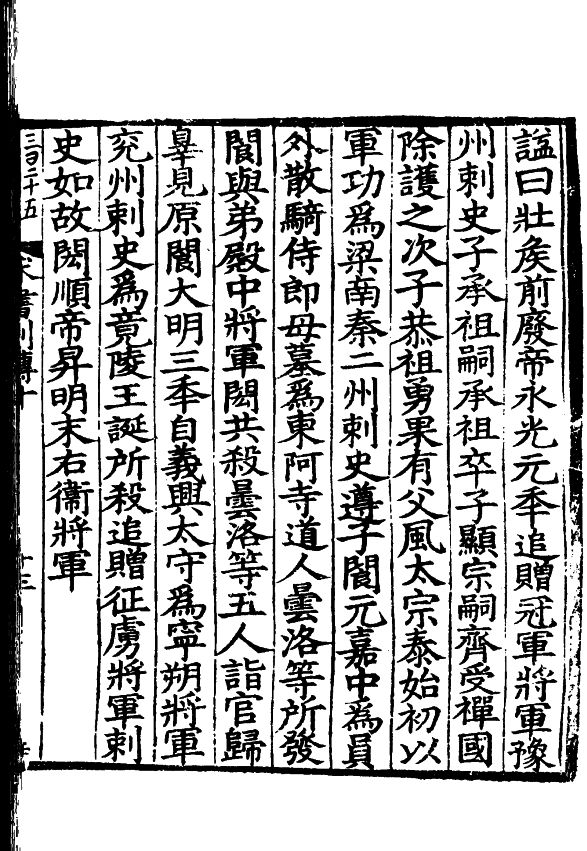 諡曰壯矦前廢帝永光元秊追贈冠軍將軍豫
州刺史子承祖嗣承祖卒子顯宗嗣齊受禪國
除護之次子恭祖勇果有父風太宗泰始初以
軍功爲梁南秦二州刺史遵子閬元嘉中爲員
外散騎侍郎母墓爲東阿寺道人曇洛等所發
閬與弟殿中將軍閎共殺曇洛等五人詣官歸
辠見原閬大明三秊自義興太守爲寧朔將軍
兖州刺史爲竟陵王誕所殺追贈征虜將軍刺
史如故閎順帝昇明末右衞將軍
三百二十五
書列傳十
十三